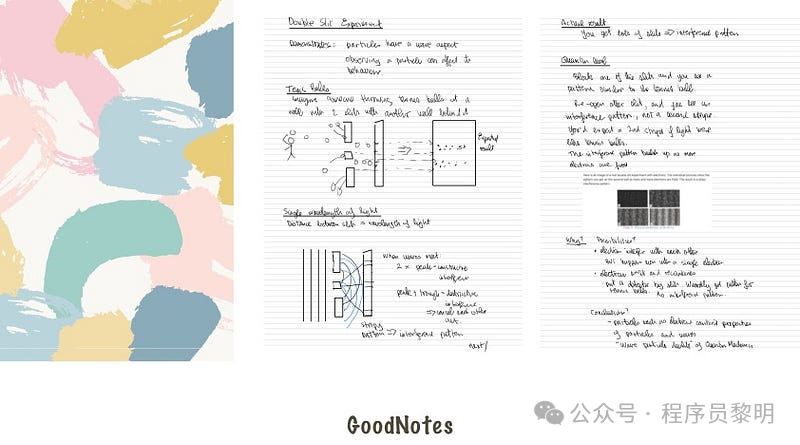 Double Slit Experiment
Demonstrates: particles have a wave aspect
observing a particle can affect its
behaviour
Tennis balls
Imagine someone throwing tennis balls at a
wall with 2 slits with another wall behind it
Expected
result
Single wavelength of light
Distance between slits = wavelength of light
When waves meet:
2 peaks - constructive
interference
peak + trough - destructive
interference
=> cancel each other
out.
Stripy
pattern => interference pattern
next/
Actual result
You get lots of slits => interference pattern
Quantum level
Block one of the slits and you see a
pattern similar to the tennis ball.
Re-open other slit, and you see an
interference pattern, not a second stripe
You'd expect a 2nd stripe of light
like tennis balls.
The interference pattern builds up as more
electrons are fired
Here is an image of a real double slit experiment with electrons. The individual pictures show the
pattern you get on the second wall as more and more electrons are fired. The result is a stripy
interference pattern.
Why? Possibilities?
• electrons interfere with each other
but happens even with a single electron
• electrons split and recombine
put a detector by slits.
tennis balls. No interference pattern.
Conclusion?
- particles such as electrons contain properties
of particles and waves
- "Wave particle duality" of Quantum Mechanics
GoodNotes
公众号 · 程序员黎明